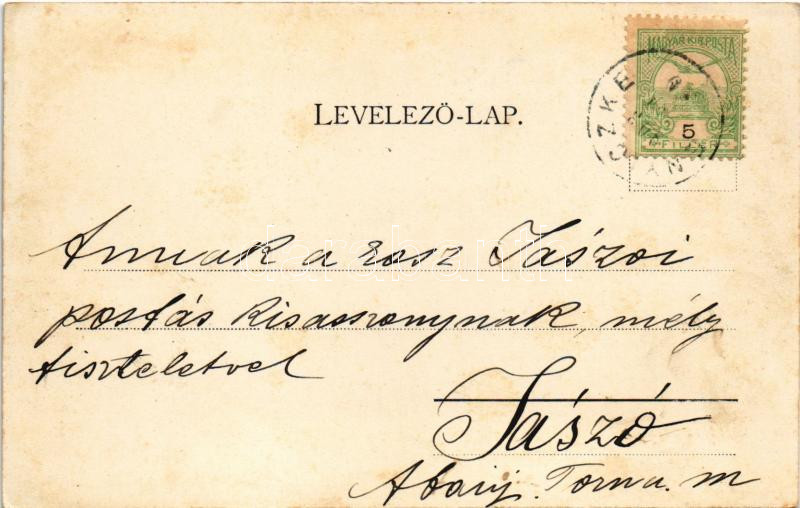 MAGYAR KIR. POSTA
5
FILLÉR
LEVELEZŐ-LAP.
Annak a rosz Jászói
postás kisasszonynak, mély
tisztelettel
Jászó
Abauj. Torna. m